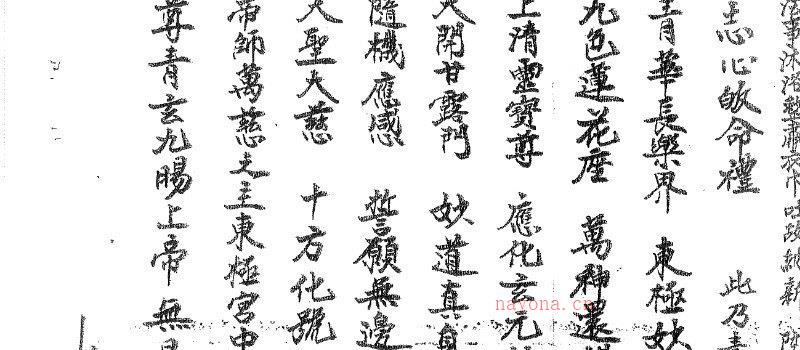 沐浴整肅衣巾吐故納新
志心皈命禮 此乃青
青華長樂界 東極妙
九色蓮花座 萬神還
上清靈寶尊 應化玄元
大開甘露門 妙道真身
隨機應感 誓願無邊
大聖大慈 十方化號
帝師萬慈之主東極宮中
尊青玄九陽上帝 無
nayona.cn